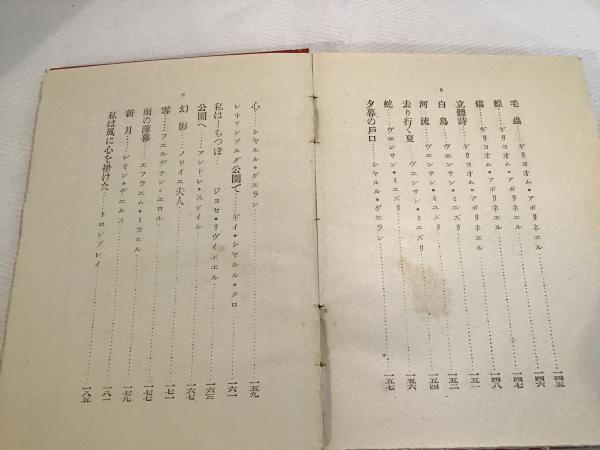 8
毛蟲……ギリヨオム・アポリネエル……一四五
蝗……ギリヨオム・アポリネエル……一四六
猫……ギリヨオム・アポリネエル……一四七
立體詩……ギリヨオム・アポリネエル……一四八
白鳥……ヴエンサン・ミユズリ……一五一
河流……ヴエンサン・ミユズリ……一五二
去り行く夏……ヴエンサン・ミユズリ……一五四
蛇……ヴエンサン・ミユズリ……一五六
夕暮の戸口……シヤルル・ゲエラン……一五七
心……シヤルル・ゲエラン……一五九
公園で……ギイ・シヤルル・クロ……一六一
私は一ちつぽ……ジヨセ・リヴイエエル……一六三
公園へ……アンドレ・スピイル……一六七
9
幻影……ノワイユ夫人……一七一
雪……フエルヂナン・エロル……一七七
雨の薄暮……エフライム・ミカエル……一七九
新月……レオン・ヂエルス……一八一
私は風に心を掛けた……トロンブレイ……一八五